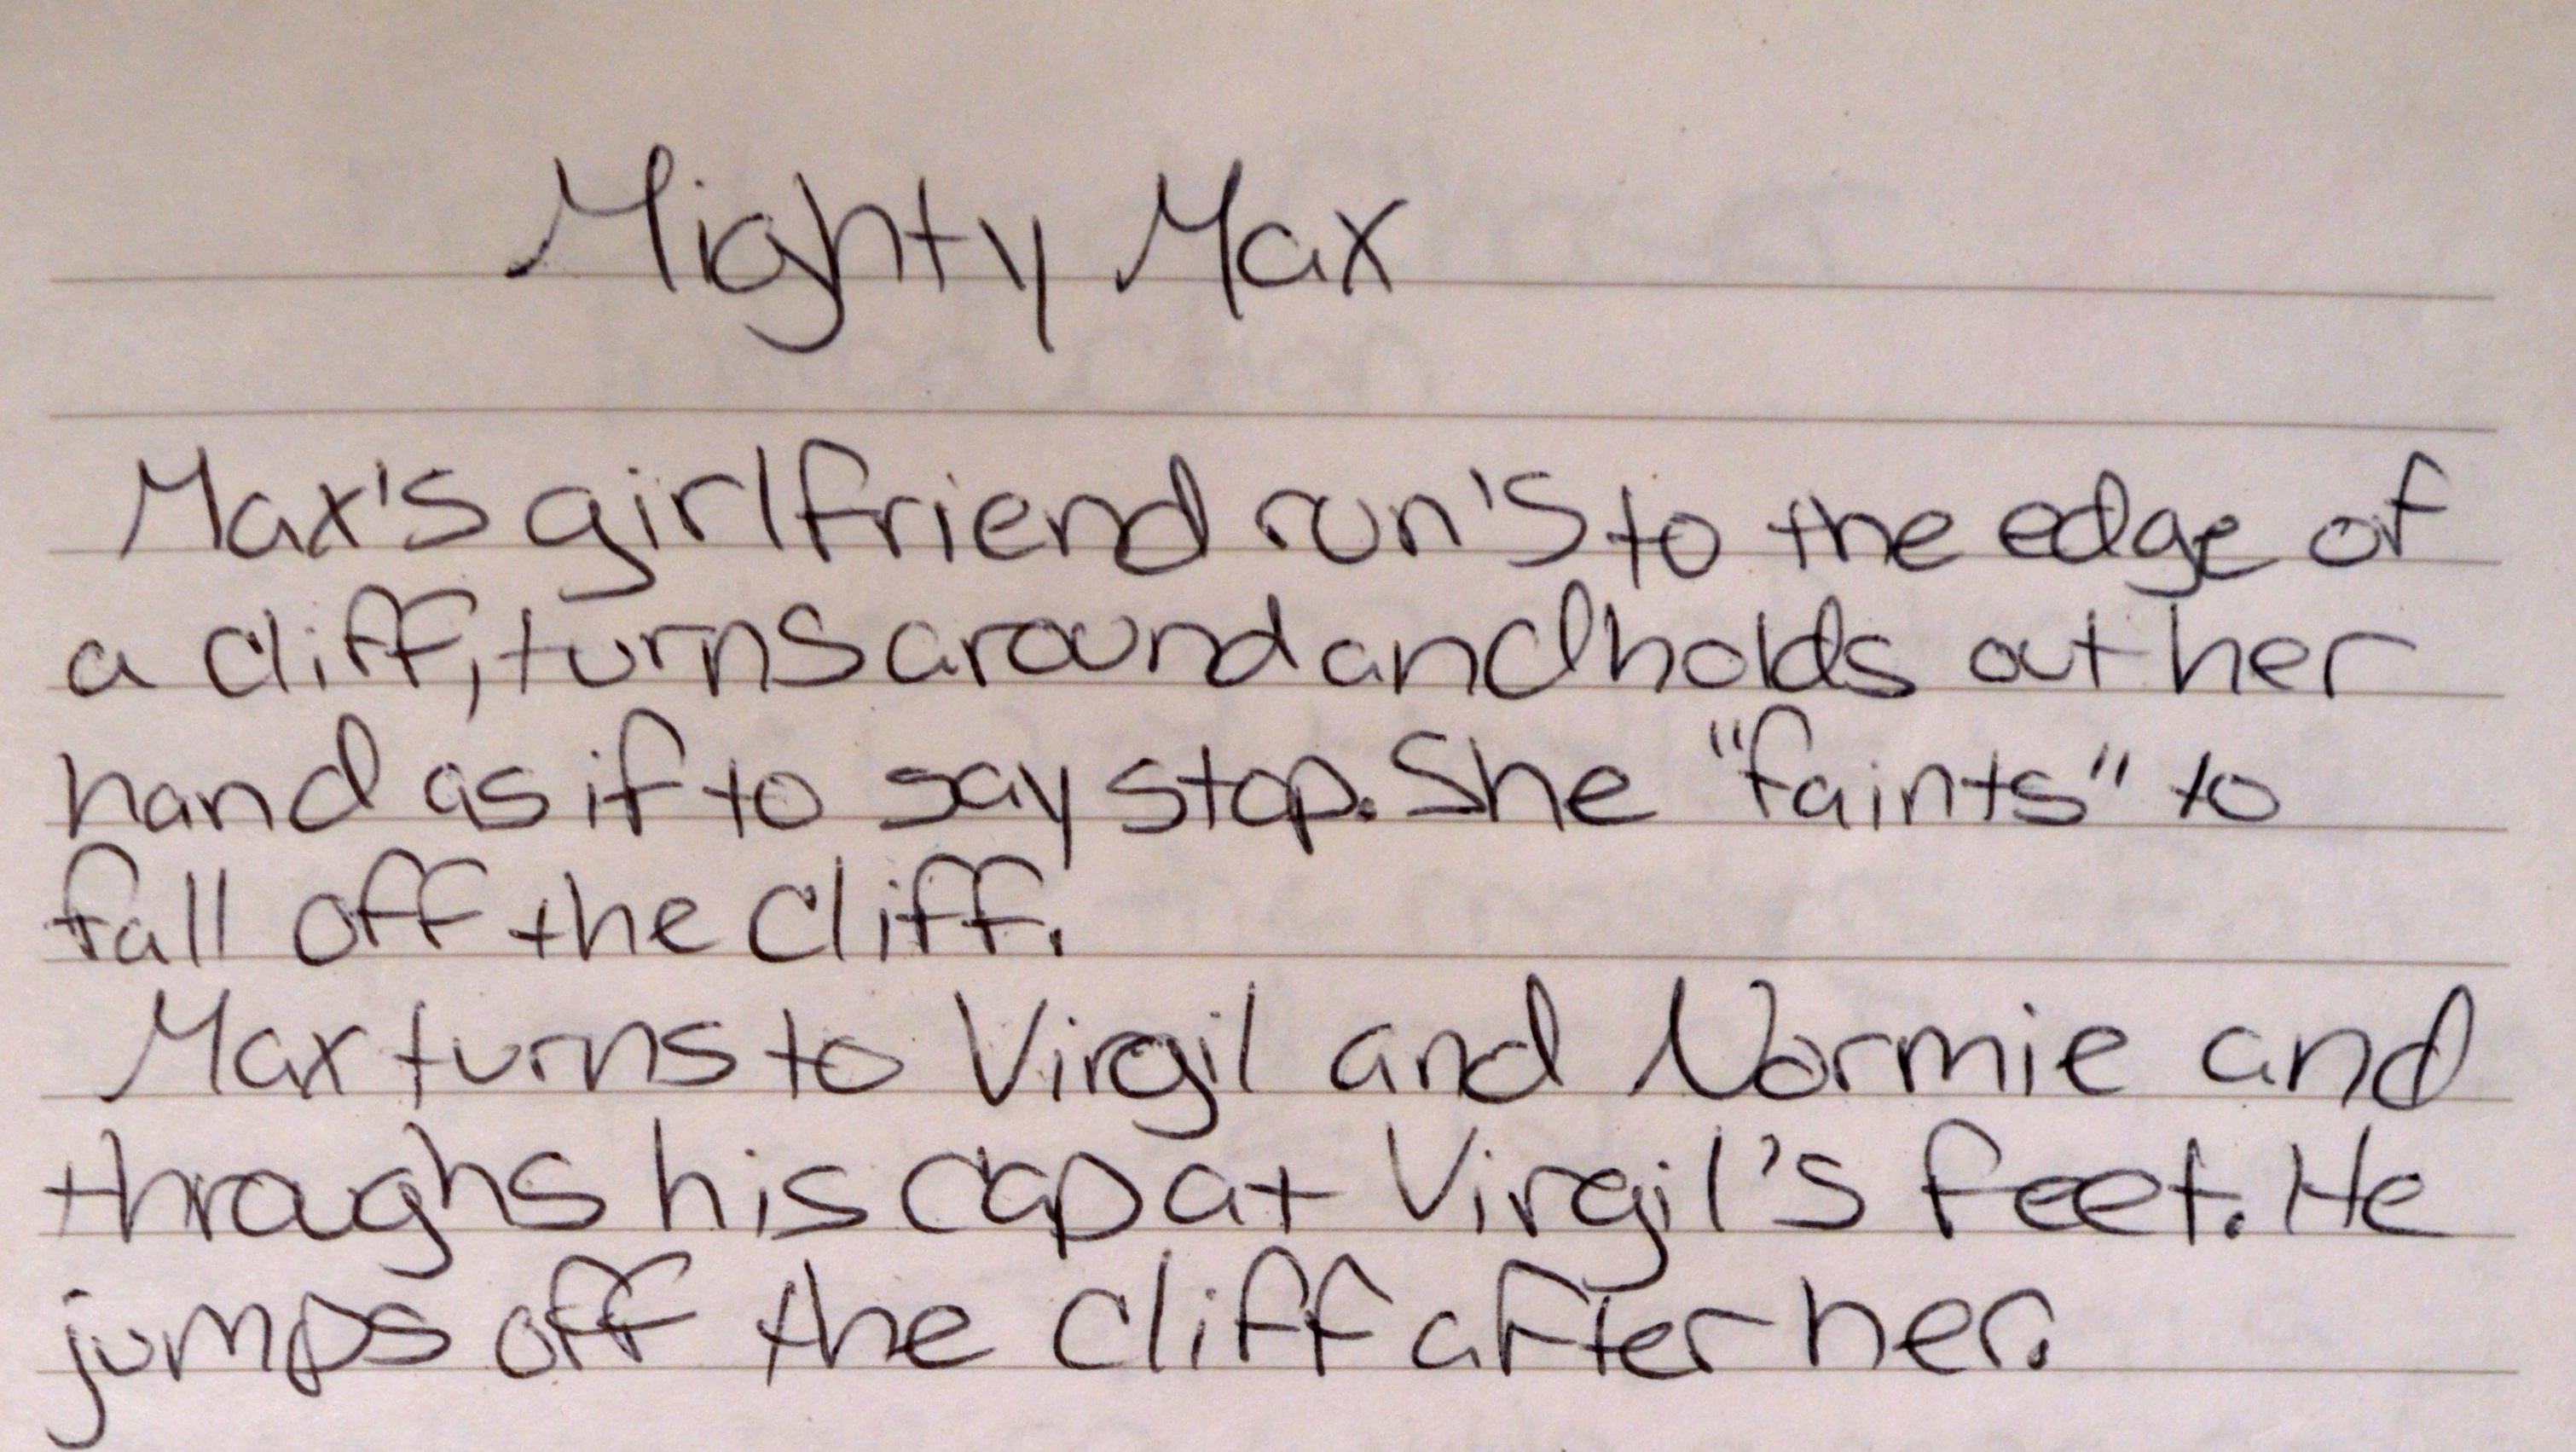 Mighty Max
Max's girlfriend run's to the edge of
a cliff, turns around and holds out her
hand as if to say stop. She "faints" to
fall off the cliff.
Max turns to Virgil and Normie and
throughs his cap at Virgil's feet. He
jumps off the cliff after her.